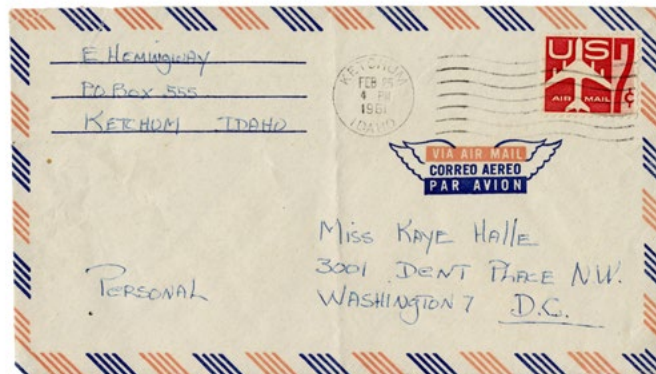 E HEMINGWAY
PO BOX 555
KETCHUM IDAHO
KETCHUM
FEB
4 PM
1961
IDAHO
US
7¢
AIR MAIL
VIA AIR MAIL
CORREO AEREO
PAR AVION
MISS KAYE HALLE
3001 DENT PLACE N.W.
WASHINGTON 7 D.C.
PERSONAL